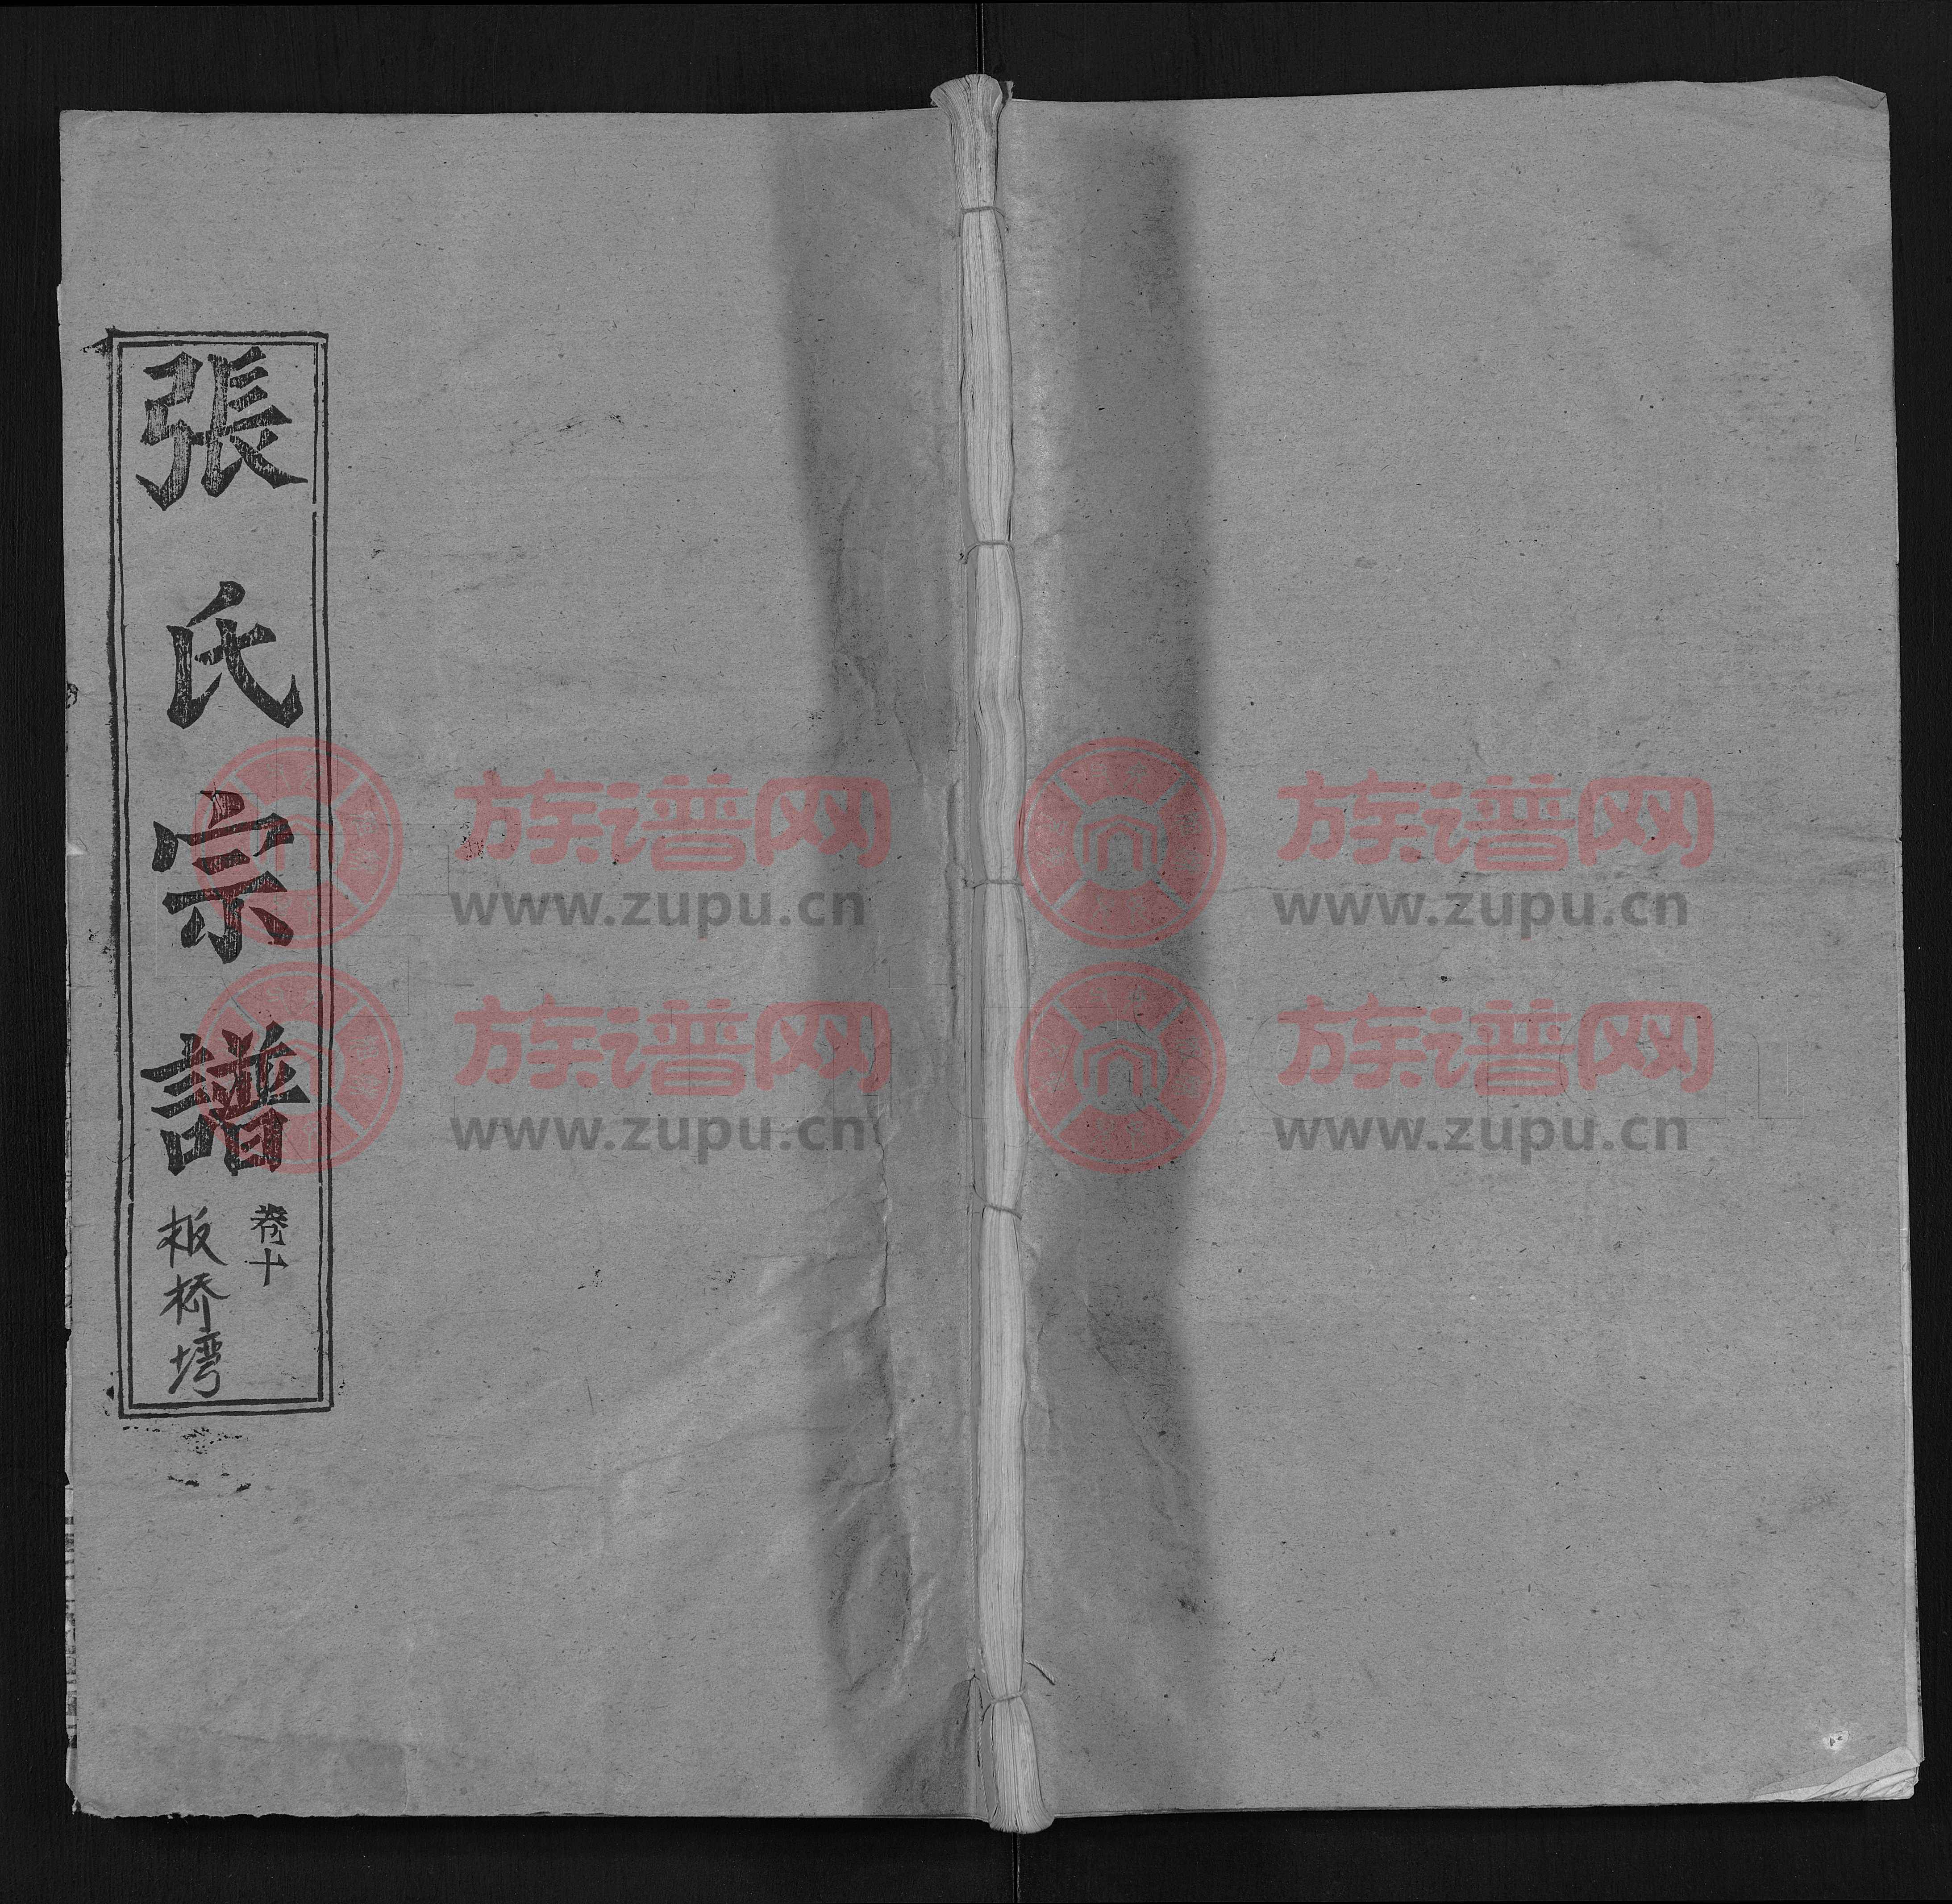 張氏宗譜
卷十
板桥塆
族谱网
www.zupu.cn
族谱网
www.zupu.cn
族谱网
www.zupu.cn
族谱网
www.zupu.cn